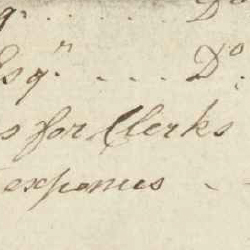 Esqr. . . . . Do.
s for Clerks
expences